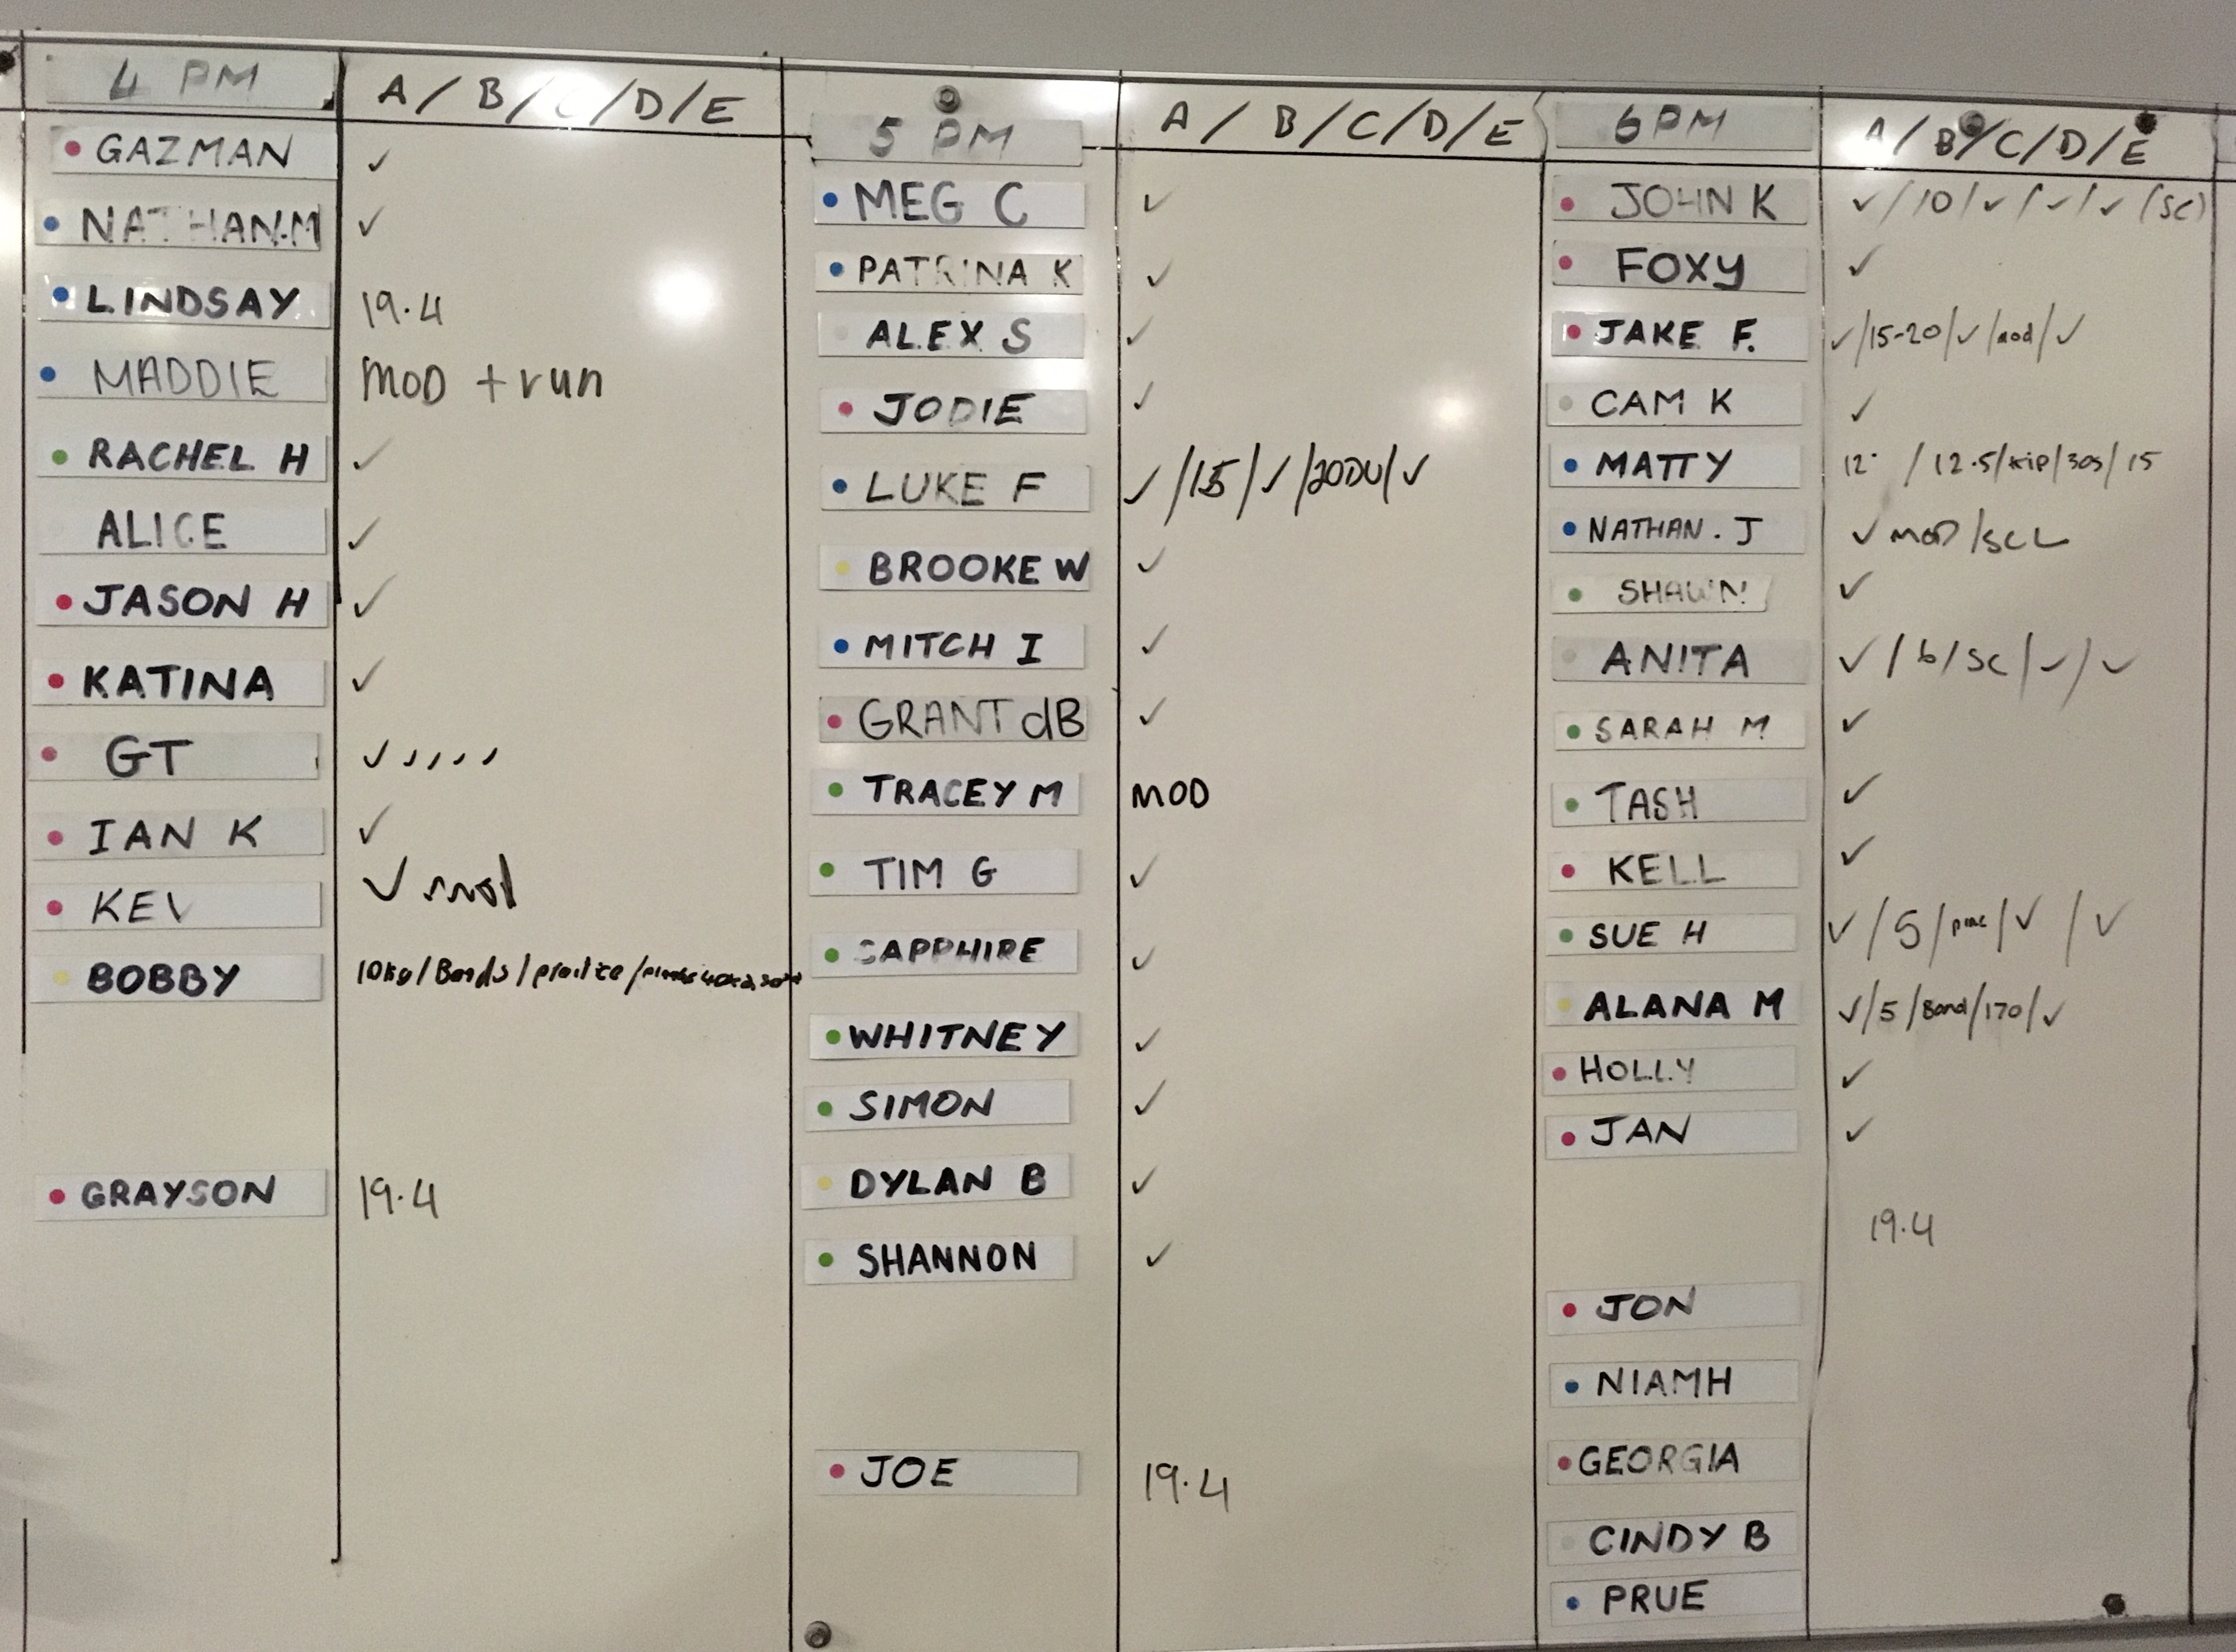 4 PM A / B / C / D / E
GAZMAN ✓
NATHAN.M ✓
LINDSAY 19.4
MADDIE MOD + run
RACHEL H ✓
ALICE ✓
JASON H ✓
KATINA ✓
GT ✓
IAN K ✓
KEV ✓ mod
BOBBY 10kg / Bands /
GRAYSON 19.4
5 PM A / B / C / D / E
MEG C ✓
PATRINA K ✓
ALEX S ✓
JODIE ✓
LUKE F ✓ / 15 / ✓ / 20DU / ✓
BROOKE W ✓
MITCH I ✓
GRANT dB ✓
TRACEY M MOD
TIM G ✓
SAPPHIRE ✓
WHITNEY ✓
SIMON ✓
DYLAN B ✓
SHANNON ✓
JOE 19.4
6PM A / B / C / D / E
JOHN K ✓ / 10 / ✓ / ✓ / ✓ (SC)
FOXY ✓
JAKE F. ✓ / 15-20 / ✓ / mod / ✓
CAM K ✓
MATTY 12 / 12.5 / kip / 30s / 15
NATHAN . J ✓ MOD / SCL
SHAWN ✓
ANITA ✓ / 6 / SC / ✓ / ✓
SARAH M ✓
TASH ✓
KELL ✓
SUE H ✓ / 5 / prac / ✓ / ✓
ALANA M ✓ / 5 / Band / 170 / ✓
HOLLY ✓
JAN ✓
19.4
JON
NIAMH
GEORGIA
CINDY B
PRUE